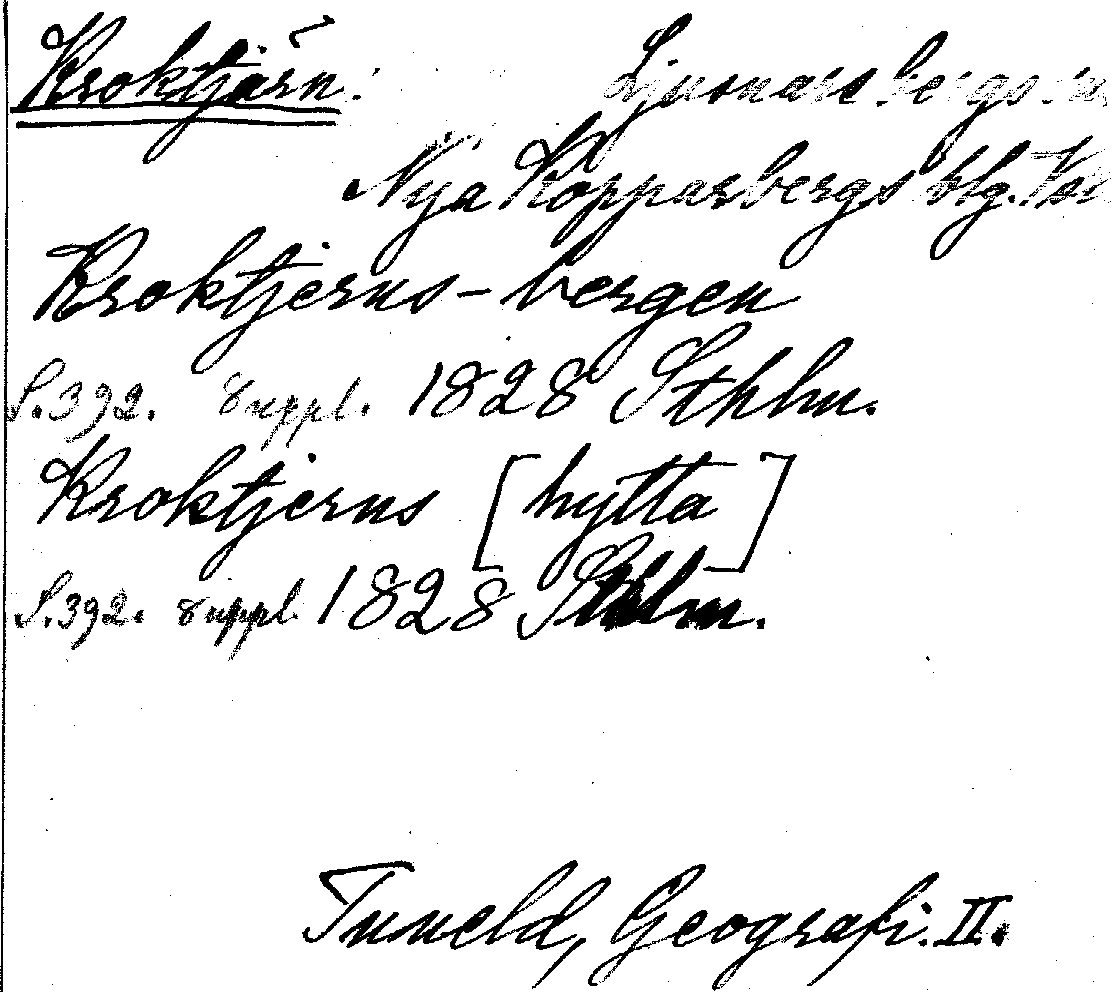 Kroktjärn: Ljusnarsbergs
Nya Kopparbergs blg.
Kroktjerns-bergen
S.392. Suppl. 1828 Sthlm.
Kroktjerns [hytta]
S.392. Suppl. 1828 Sthlm.
Tuneld, Geografi. II.